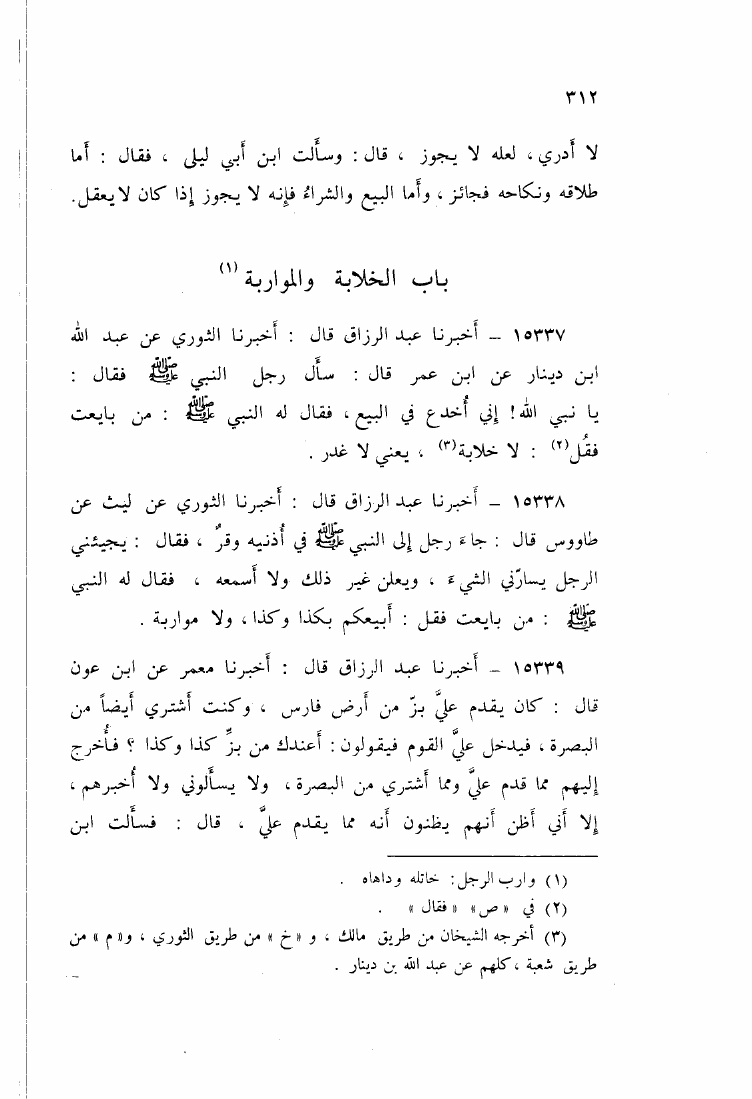 ٣١٢
لا أدري، لعله لا يجوز ، قال : وسألت ابن أبي ليلى ، فقال : أما
طلاقه ونكاحه فجائز ، وأما البيع والشراءُ فإنه لا يجوز إذا كان لا يعقل.
باب الخلابة والمواربة (١)
١٥٣٣٧ – أخبرنا عبد الرزاق قال : أخبرنا الثوري عن عبد الله
ابن دينار عن ابن عمر قال : سأل رجل النبي ﷺ فقال :
يا نبي الله! إني أُخدع في البيع ، فقال له النبي ﷺ : من بايعت
فقُل (٢) : لا خلابة (٣) ، يعني لا غدر .
١٥٣٣٨ – أخبرنا عبد الرزاق قال : أخبرنا الثوري عن ليث عن
طاووس قال : جاءَ رجل إلى النبي ﷺ في أُذنيه وقرٌ ، فقال : يجيئني
الرجل يسارّني الشيءَ ، ويعلن غير ذلك ولا أسمعه ، فقال له النبي
ﷺ : من بايعت فقل : أبيعكم بكذا وكذا ، ولا مواربة .
١٥٣٣٩ – أخبرنا عبد الرزاق قال : أخبرنا معمر عن ابن عون
قال : كان يقدم عليَّ بزّ من أرض فارس ، وكنت أشتري أيضاً من
البصرة ، فيدخل عليَّ القوم فيقولون : أعندك من بزِّ كذا وكذا ؟ فأُخرج
إليهم مما قدم عليَّ ومما أشتري من البصرة ، ولا يسألوني ولا أُخبرهم ،
إلا أني أظن أنهم يظنون أنه مما يقدم عليَّ ، قال : فسألت ابن
(١) وارب الرجل : خاتله وداهاه .
(٢) في « ص » « فقال » .
(٣) أخرجه الشيخان من طريق مالك ، و « خ » من طريق الثوري ، و« م » من
طريق شعبة ، كلهم عن عبد الله بن دينار .